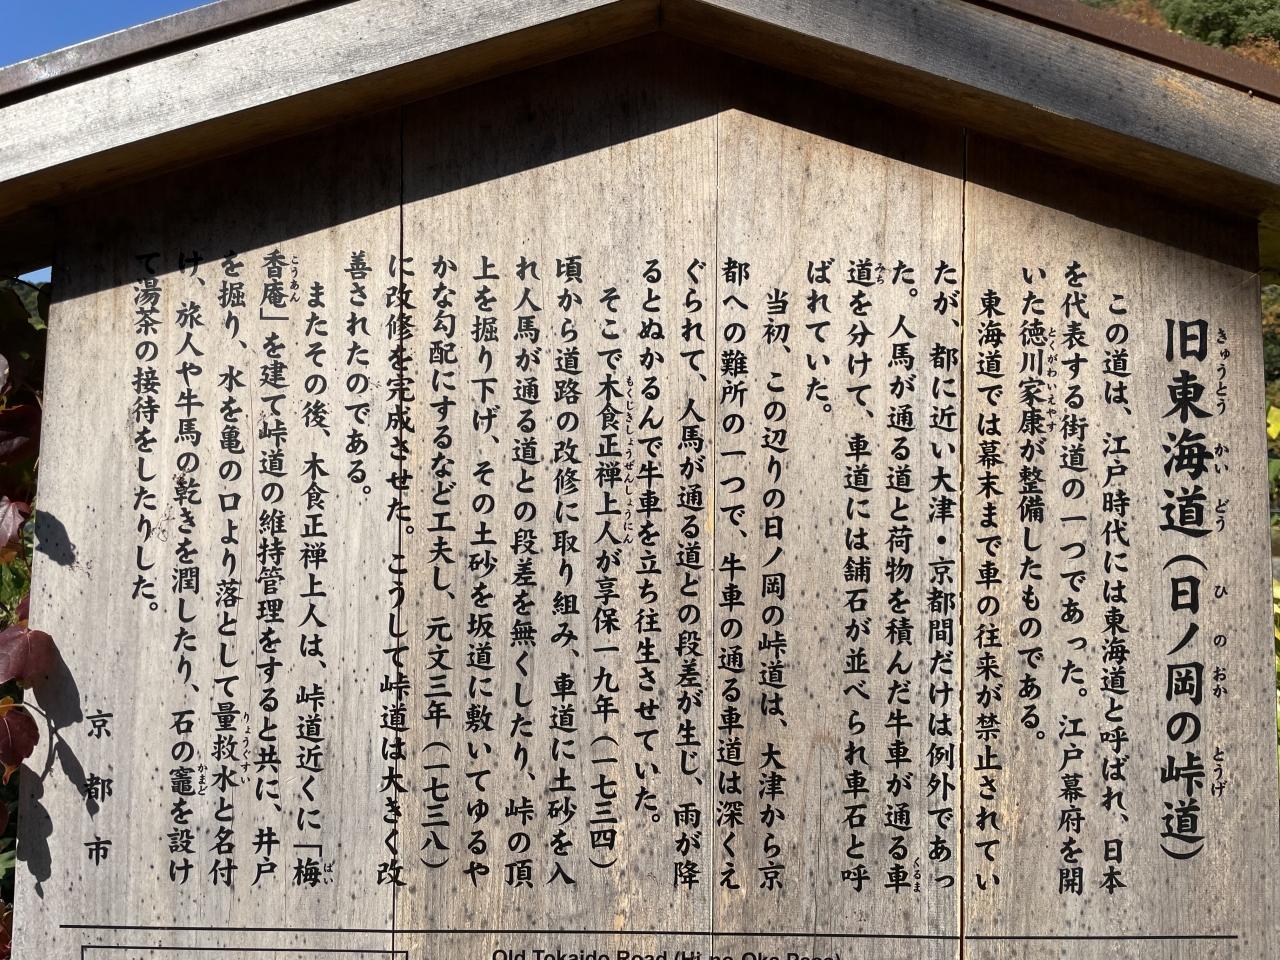 旧東海道（日ノ岡の峠道）
この道は、江戸時代には東海道と呼ばれ、日本
を代表する街道の一つであった。江戸幕府を開
いた徳川家康が整備したものである。
東海道では幕末まで車の往来が禁止されてい
たが、都に近い大津・京都間だけは例外であっ
た。人馬が通る道と荷物を積んだ牛車が通る車
道を分けて、車道には舗石が並べられ車石と呼
ばれていた。
当初、この辺りの日ノ岡の峠道は、大津から京
都への難所の一つで、牛車の通る車道は深くえ
ぐられて、人馬が通る道との段差が生じ、雨が降
るとぬかるんで牛車を立ち往生させていた。
そこで木食正禅上人が享保一九年（一七三四）
頃から道路の改修に取り組み、車道に土砂を入
れ人馬が通る道との段差を無くしたり、峠の頂
上を掘り下げ、その土砂を坂道に敷いてゆるや
かな勾配にするなど工夫し、元文三年（一七三八）
に改修を完成させた。こうして峠道は大きく改
善されたのである。
またその後、木食正禅上人は、峠道近くに「梅
香庵」を建て峠道の維持管理をすると共に、井戸
を掘り、水を亀の口より落として量救水と名付
け、旅人や牛馬の乾きを潤したり、石の竈を設け
て湯茶の接待をしたりした。
京都市
Old Tokaido Road (Hi no Oka Pass)